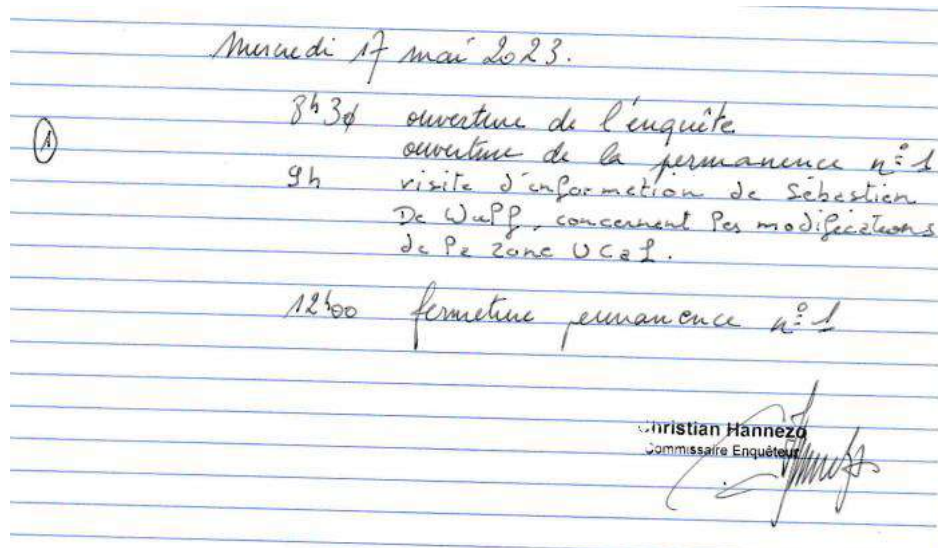 Mercredi 17 mai 2023.
8h30 ouverture de l'enquête
ouverture de la permanence n° 1
① 9h visite d'information de Sébastien
De Wulf, concernant les modifications
de la zone UCa1.
12h00 fermeture permanence n° 1
Christian Hannezo
Commissaire Enquêteur